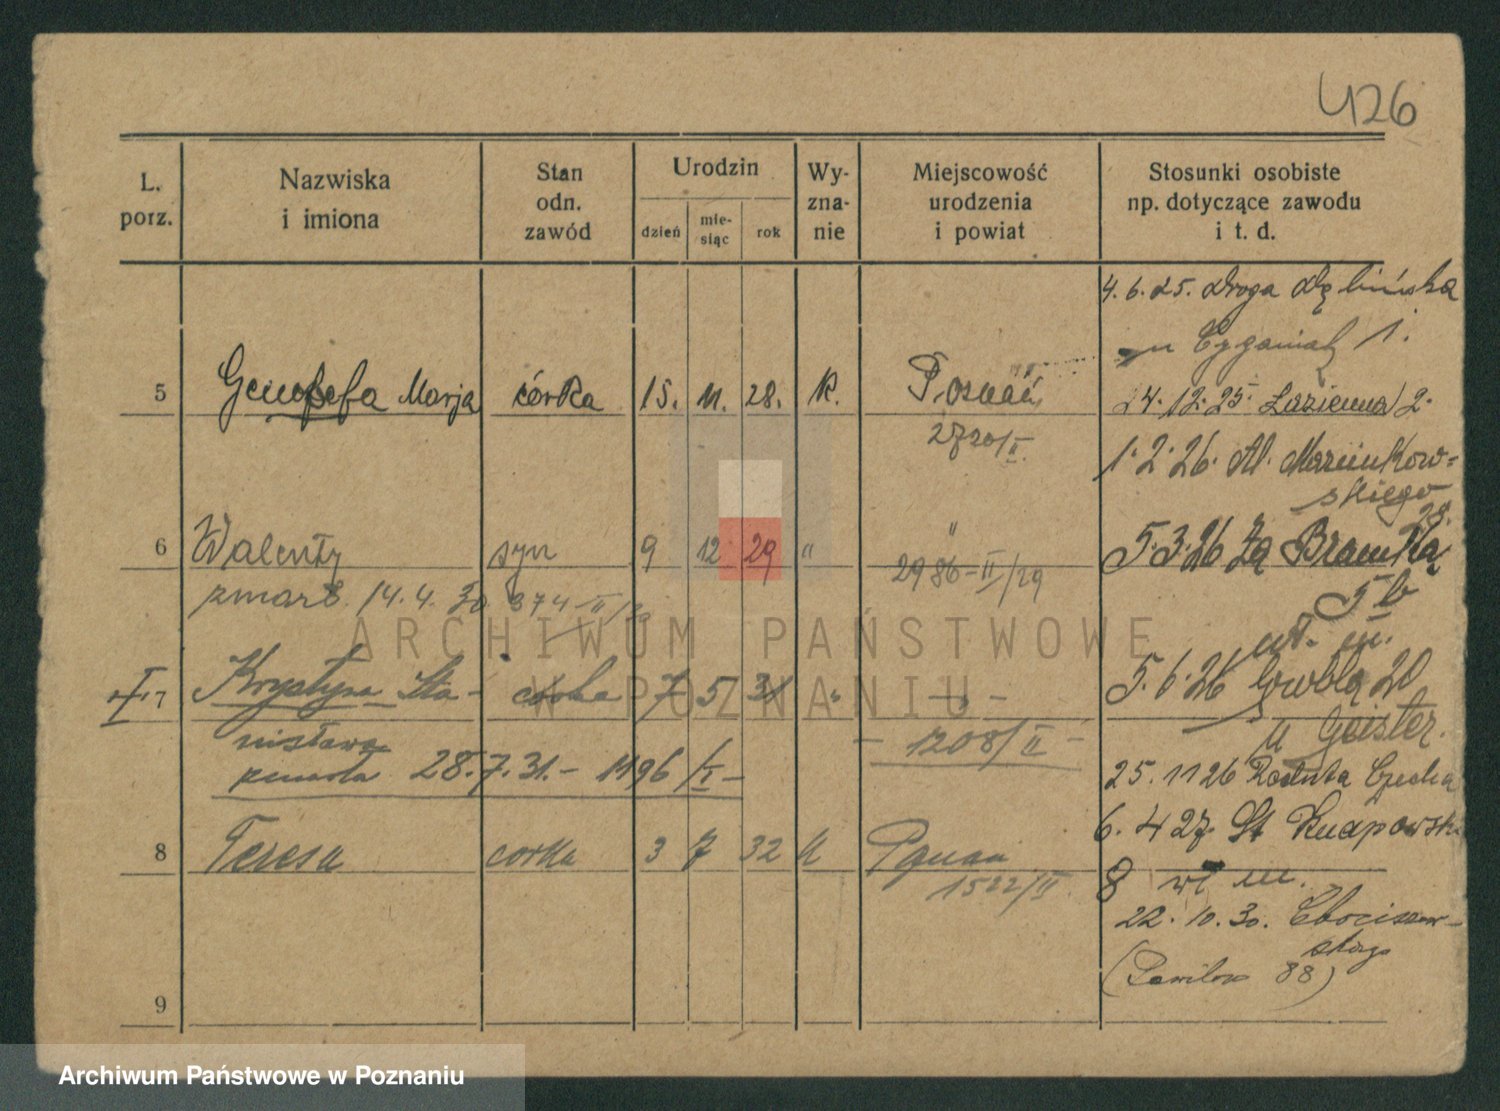 426
L. porz.
Nazwiska i imiona
Stan odn. zawód
Urodzin
dzień
mie-
siąc
rok
Wy-
zna-
nie
Miejscowość urodzenia i powiat
Stosunki osobiste np. dotyczące zawodu i t. d.
4.6.25. Droga Dęblińska
1.
5 Genofefa Marja córka 15. 11. 28. k. Poznań
2720/II
24.12.25 Łazienna 2.
1.2.26. Al. Marcinkow=
skiego
28.
6 Walenty syn 9 12 29 " "
zmarł 14.4.30 874-II/30
2986-II/29
5.3.26 Za Bramką
5b
wł. m.
7 Krystyna Sta- córka 7 5 31 " - " -
nisława
zmarła 28.7.31.- 1196/I-
- 1208/II -
5.6.26 Grobla 20
u Geister.
25.11 26
6.4 27. St Knapowski
8 Teresa corka 3 7 32 k Poznan
1522/II
8 wł m.
22.10.30. Chociszew-
skiego
(Pawilon 88)
9
ARCHIWUM PAŃSTWOWE
W POZNANIU
Archiwum Państwowe w Poznaniu